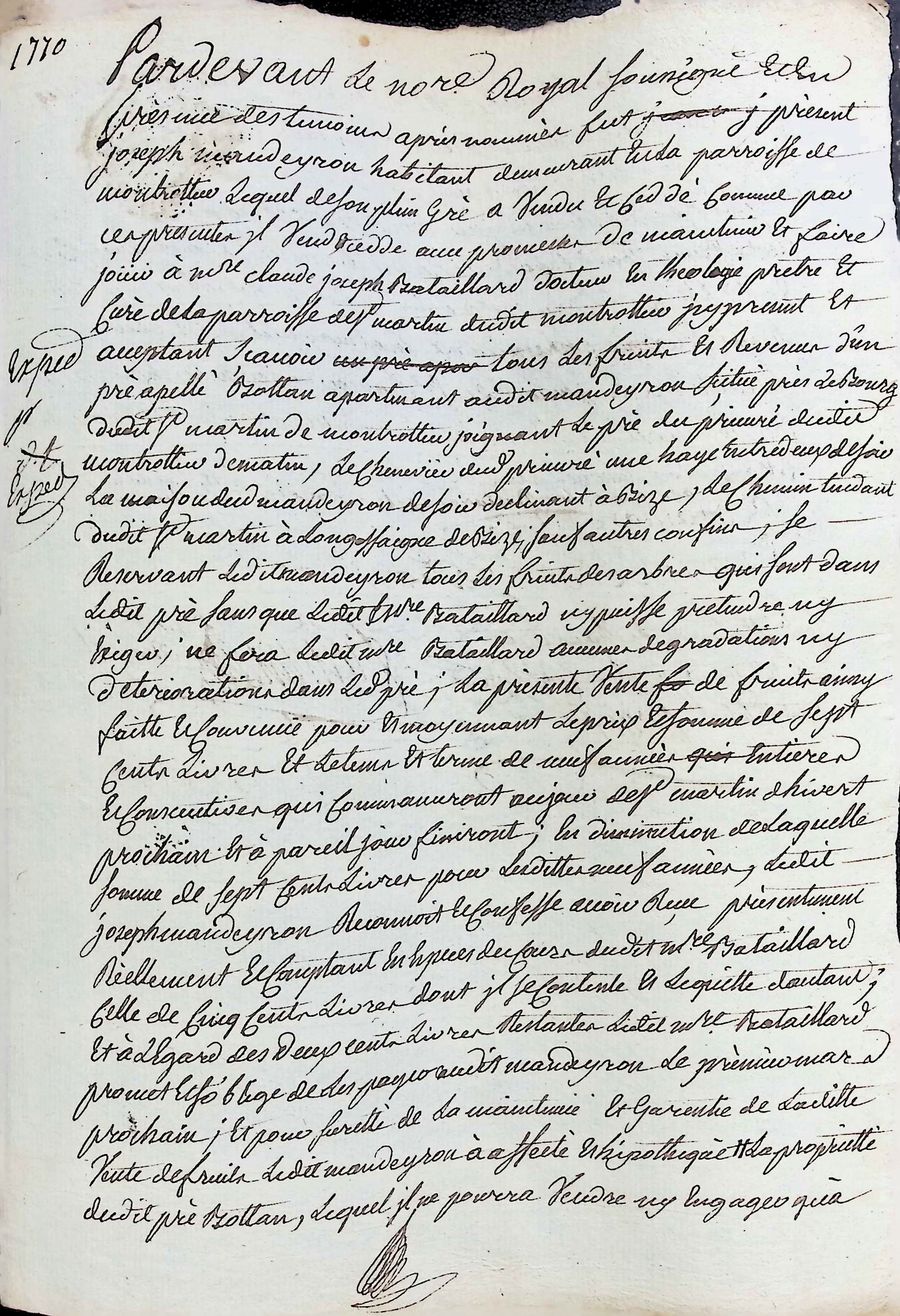 1770
Pardevant Le nore Royal soussigné Et En
presence des temoins après nommés fut j présent
joseph mandeyron habitant demeurant En La parroisse de
montrottier Lequel de son plein Gré a Vendu Et Ceddé Comme par
ces presentes jl Vend Cedde avec promesse De maintenir Et faire
joüir à mre claude joseph Bataillard docteur En theologie pretre Et
Curé de La parroisse de st martin dudit montrottier jcy present Et
acceptant Scavoir un pré apar tous Les fruits Et Revenus d'un
pré apellé Bottan apartenant audit mandeyron situé près Le Bourg
dudit st martin de montrottier joignant Le pré du prieuré dudit
montrottier de matin, Le Chenevier dud prieuré une haye Entredeux de soir
La maison dud mandeyron de soir declinant à Bize, Le Chemin tendant
dudit st martin à Longessaigne de Bize, sauf autres confins ; se
Reservant Ledit mandeyron tous Les fruits des arbres qui sont dans
Ledit pré sans que Ledit mre Bataillard ny puisse pretendre ny
Exiger ; ne fera Ledit mre Bataillard aucunes degradations ny
deteriorations dans Led pré ; La présente Vente de fruits ainsy
faitte Et Convenüe pour Et moyennant Le prix Et somme de sept
Cents Livres Et Le tems Et terme de neuf années qui Entieres
Et Consecutives qui Commanceront au jour de st martin dhivert
prochain Et à pareil jour finiront ; En diminution de Laquelle
somme de sept Cents Livres pour Lesdittes neuf années, Ledit
joseph mandeyron Reconnoit Et Confesse avoir Reçu présentement
Réellement Et Comptant En Especes du Cours dudit mre Bataillard
Celle de Cinq Cents Livres dont jl se Contente Et Le quitte d'autant ;
Et à L'Egard des Deux cents Livres Restantes Ledit mre Bataillard
promet Et s'oblige de Les payer audit mandeyron Le premier mars
prochain ; Et pour sureté de La maintenüe Et Garentie de Laditte
Vente de fruits Ledit mandeyron à affecté Et hipothéqué La proprieté
dudit pré Bottan, Lequel jl ne pourra Vendre ny Engager qu'à
Exped
Exped